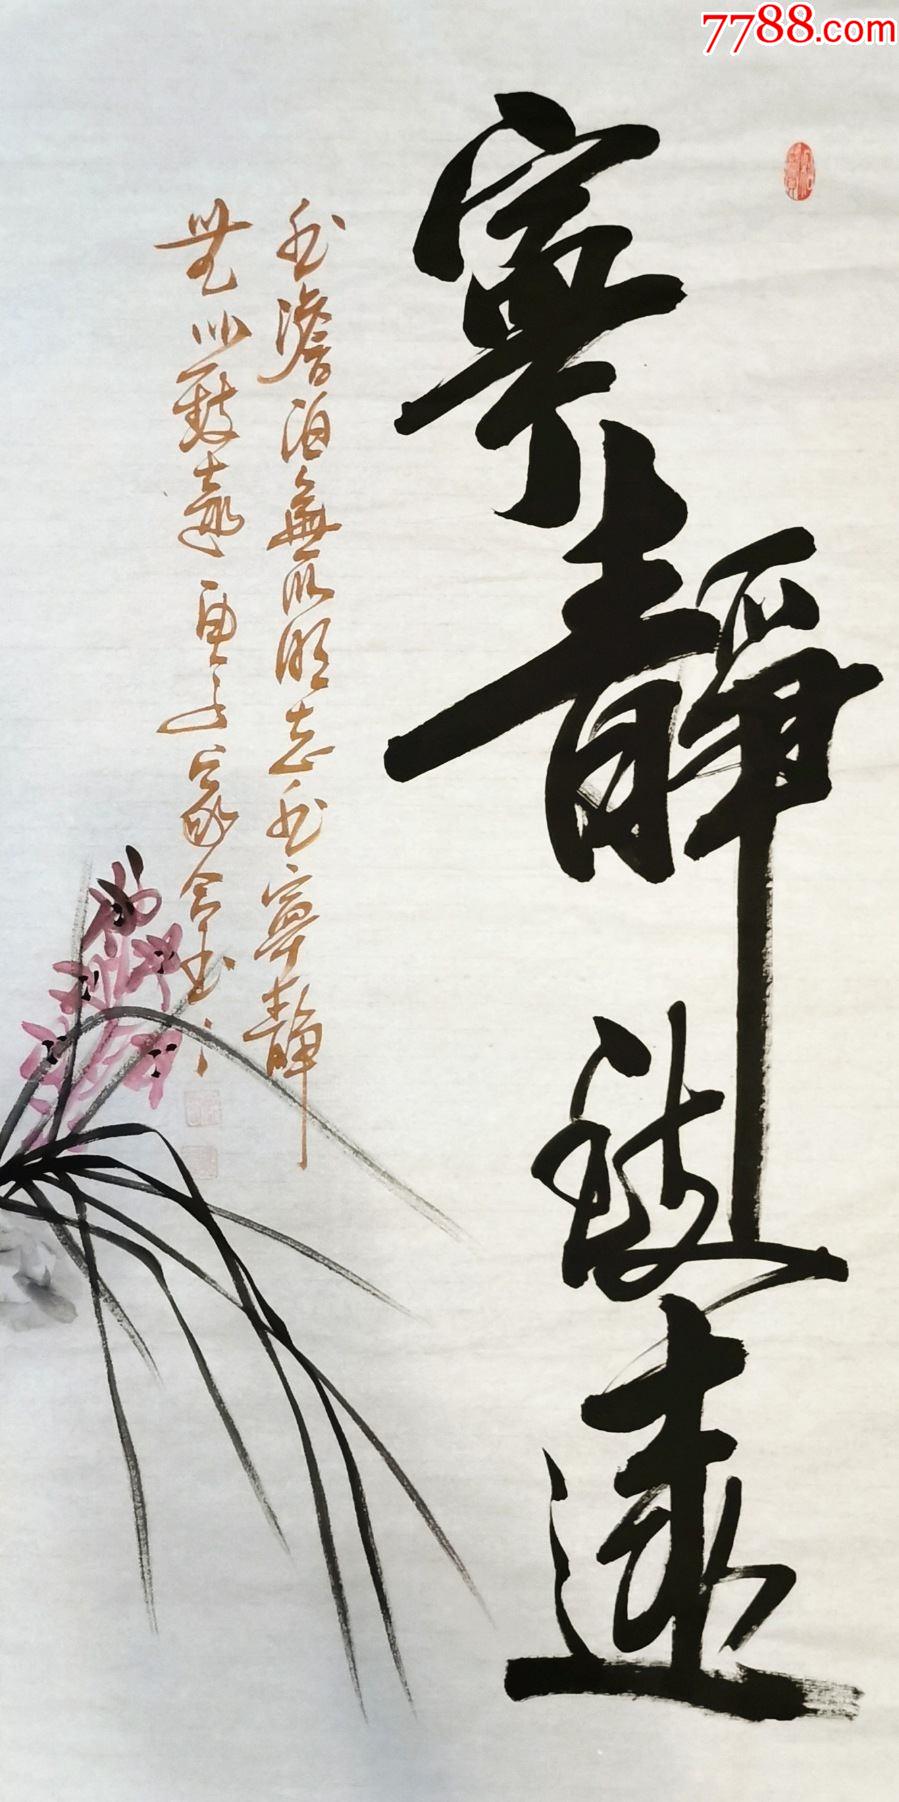 7788.com
寧靜致遠
非澹泊無以明志非寧靜
無以致遠